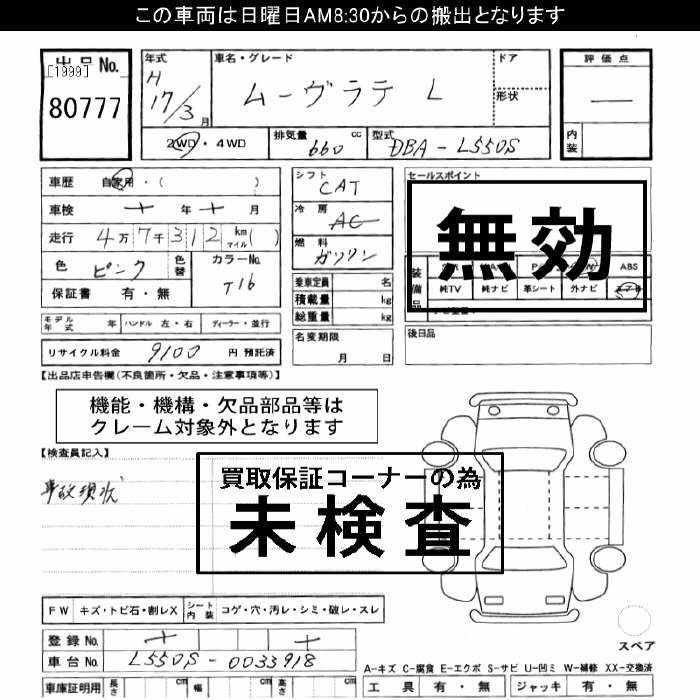 この車両は日曜日AM8:30からの搬出となります
出品No.
[1999]
80777
年式
H
17/3月
車名・グレード
ムーヴラテ L
ドア
形状
評価点
内装
2WD・4WD
排気量 660 cc
型式 DBA-L550S
車歴 自家用・( )
車検 年 月
走行 4万7千312 km マイル( )
色 ピンク
色替
カラーNo. T16
保証書 有・無
シフト CAT
冷房 AC
燃料 ガソリン
乗車定員 名
積載量 kg
総重量 kg
セールスポイント
無効
装備品
ABS
純TV 純ナビ 革シート 外ナビ
モデル年式 年 ハンドル 左・右 ディーラー・並行
リサイクル料金 9100 円 預託済
名変期限
月 日
後日品
【出品店申告欄(不良箇所・欠品・注意事項等)】
機能・機構・欠品部品等は
クレーム対象外となります
【検査員記入】
事故現状
買取保証コーナーの為
未検査
FW キズ・トビ石・割レX シート内装 コゲ・穴・汚レ・シミ・破レ・スレ
登録No.
車台No. L550S-0033918
車庫証明用 長さ cm 幅 cm 高さ cm
スペア
A-キズ C-腐食 E-エクボ S-サビ U-凹ミ W-補修 XX-交換済
工具 有・無 ジャッキ 有・無